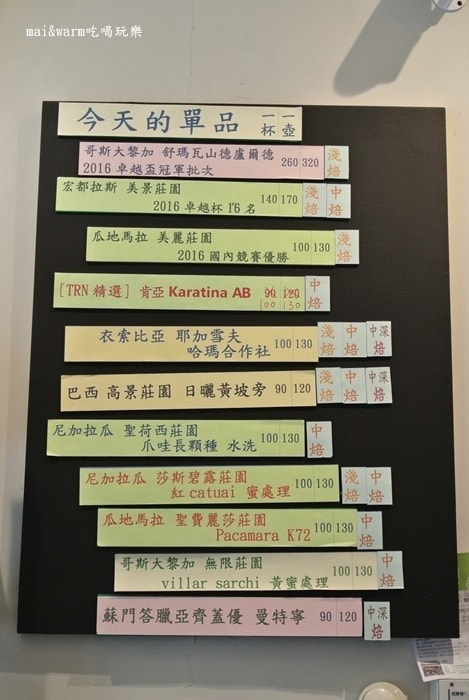 mai&warm吃喝玩樂
今天的單品 一杯 一壺
哥斯大黎加 舒瑪瓦山德盧爾德 260 320 淺焙
2016 卓越盃冠軍批次
宏都拉斯 美景莊園 140 170 淺焙 中焙
2016 卓越杯 16名
瓜地馬拉 美麗莊園 100 130 淺焙
2016 國內競賽優勝
[TRN 精選] 肯亞 Karatina AB 90 120 中焙
100 130
衣索比亞 耶加雪夫 100 130 淺焙 中焙 中深焙
哈瑪合作社
巴西 高景莊園 日曬黃坡旁 90 120 淺焙 中焙 中深焙
尼加拉瓜 聖荷西莊園 100 130 中焙
爪哇長顆種 水洗
尼加拉瓜 莎斯碧露莊園 100 130 淺焙 中焙
紅catuai 蜜處理
瓜地馬拉 聖費麗莎莊園 100 130 中焙
Pacamara K72
哥斯大黎加 無限莊園 100 130 中焙
villar sarchi 黃蜜處理
蘇門答臘亞齊蓋優 曼特寧 90 120 中深焙